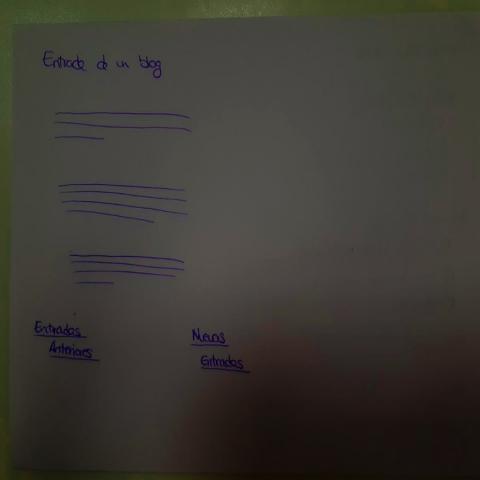 Entrada de un blog
Entradas
Anteriores
Nuevas
Entradas